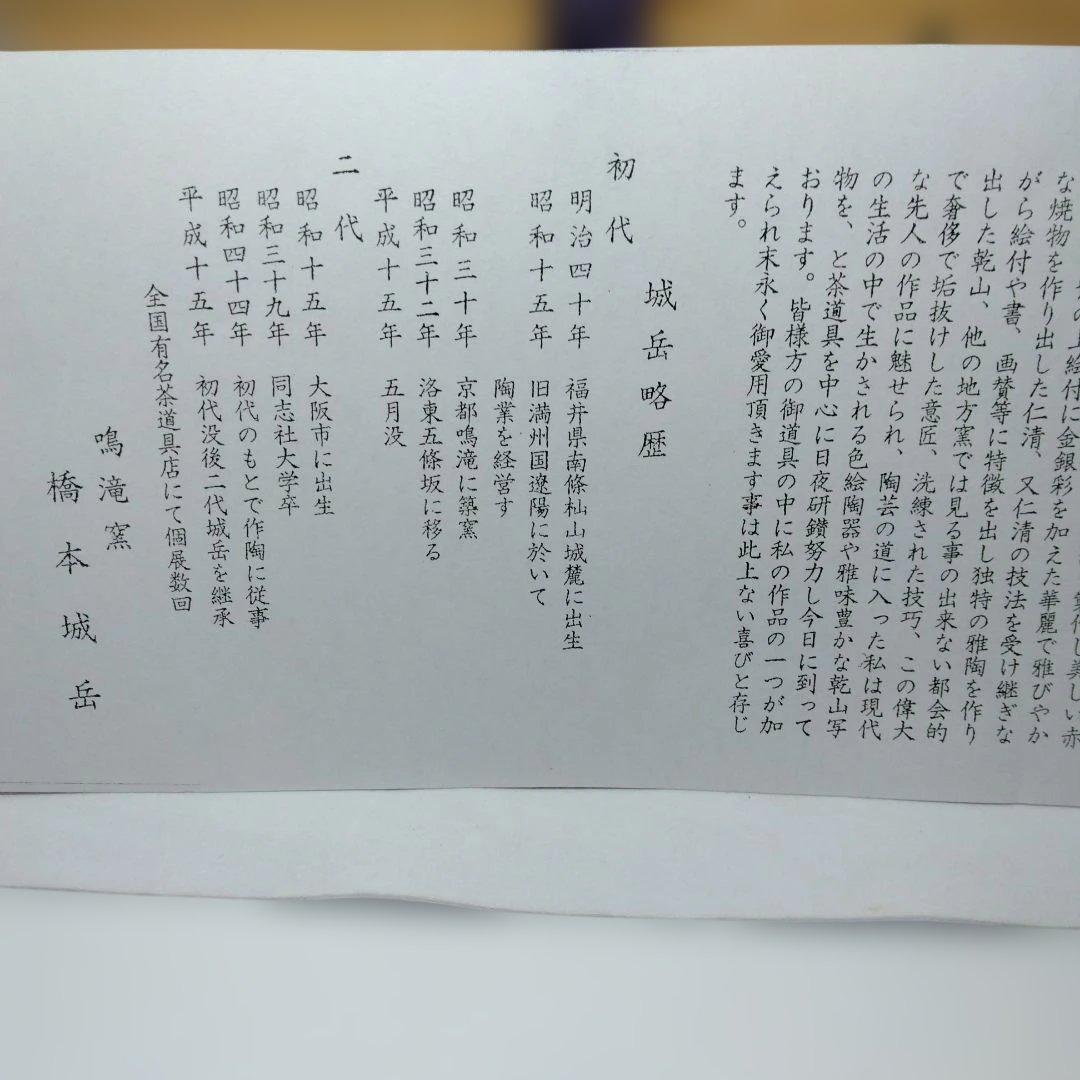 な焼物を作り出した仁清、又仁清の技法を受け継ぎな
がら絵付や書、画賛等に特徴を出し独特の雅陶を作り
出した乾山、他の地方窯では見る事の出来ない都会的
で奢侈で垢抜けした意匠、洗練された技巧、この偉大
な先人の作品に魅せられ、陶芸の道に入った私は現代
の生活の中で生かされる色絵陶器や雅味豊かな乾山写
物を、と茶道具を中心に日夜研鑽努力し今日に到って
おります。皆様方の御道具の中に私の作品の一つが加
えられ末永く御愛用頂きます事は此上ない喜びと存じ
ます。
城岳略歴
初代
明治四十年 福井県南條杣山城麓に出生
昭和十五年 旧満州国遼陽に於いて
陶業を経営す
昭和三十年 京都鳴滝に築窯
昭和三十二年 洛東五條坂に移る
平成十五年 五月没
二代
昭和十五年 大阪市に出生
昭和三十九年 同志社大学卒
昭和四十四年 初代のもとで作陶に従事
平成十五年 初代没後二代城岳を継承
全国有名茶道具店にて個展数回
鳴滝窯
橋本城岳